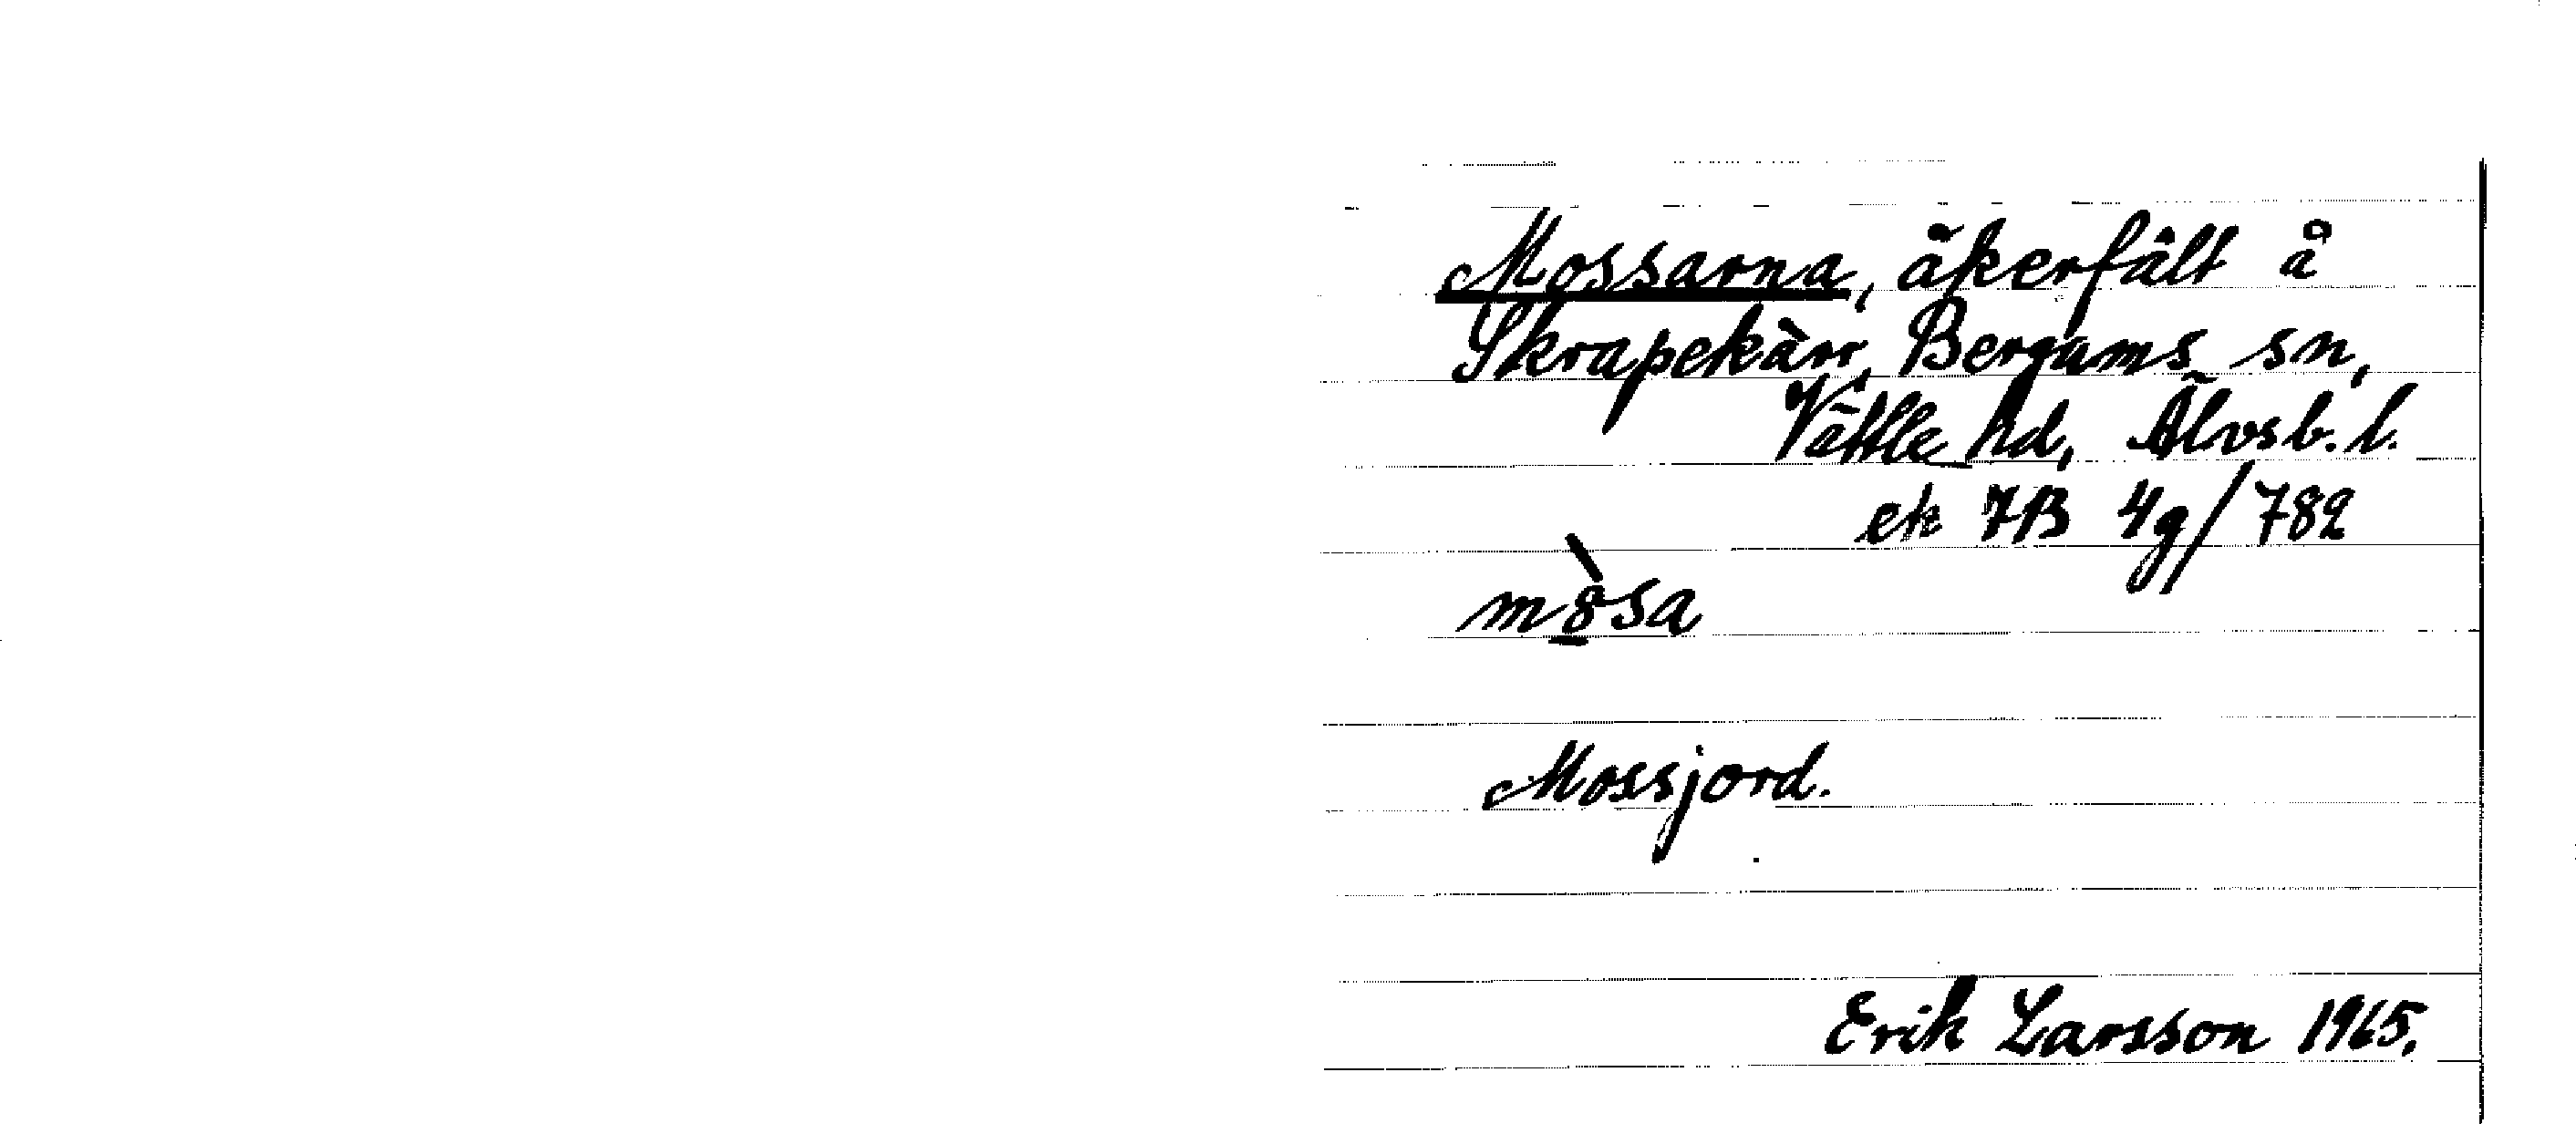 Mossarna, åkerfält å
Skrapekärr, Bergums sn,
Vättle hd, Älvsb. l.
ek 7B 4g/782
Mossjord.
Erik Larsson 1965.